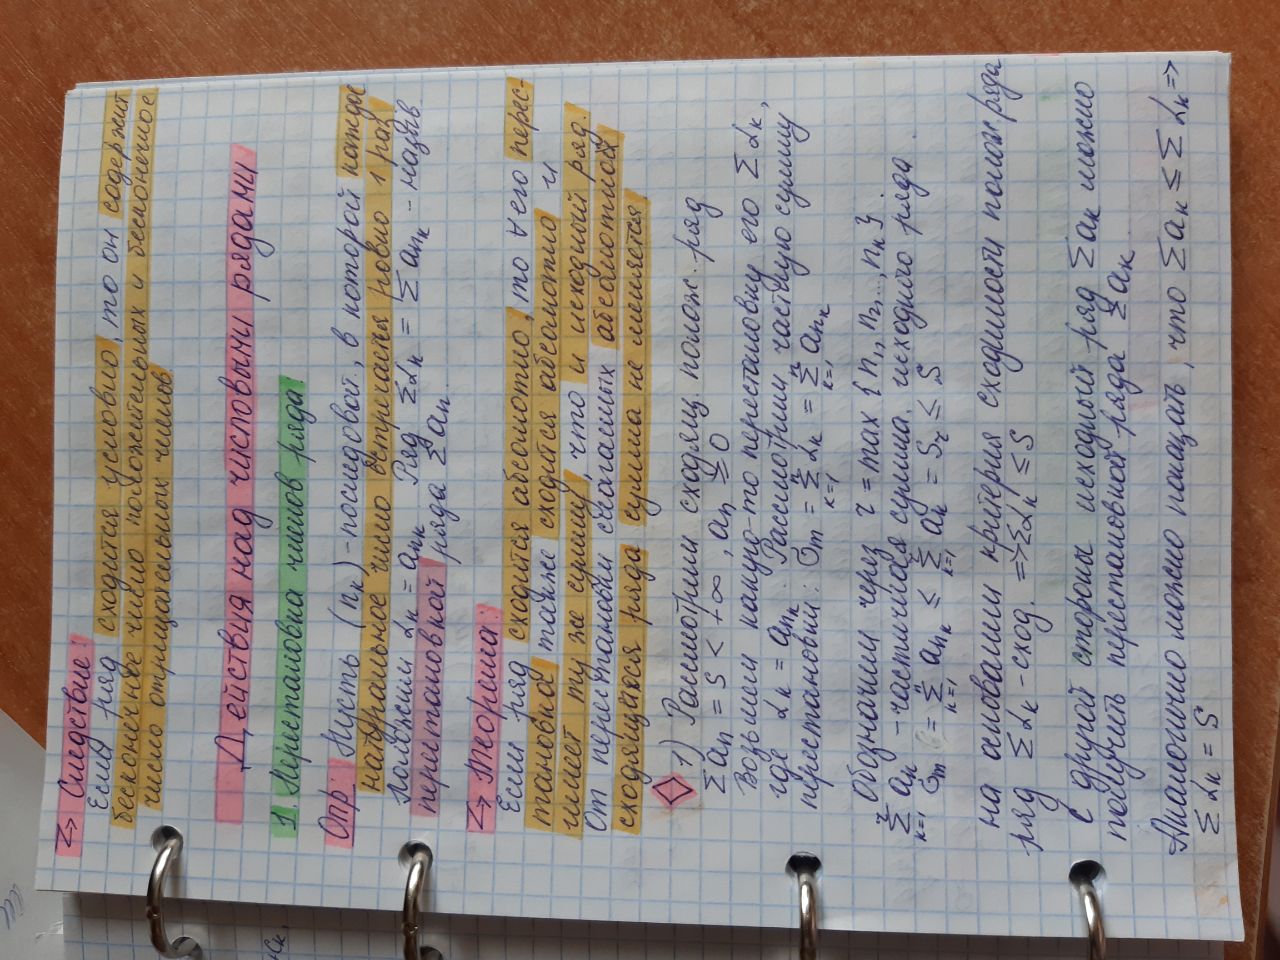 ↳ Следствие:
Если ряд сходится условно, то он содержит
бесконечное число положительных и бесконечное
число отрицательных членов.
Действия над числовыми рядами
1. Перестановка членов ряда
Опр: Пусть (nₖ) - последоват., в которой каждое
натуральное число встречается ровно 1 раз
Положим αₖ = aₙₖ Ряд Σαₖ = Σaₙₖ - назыв.
перестановкой ряда Σaₙ.
↳ Теорема:
Если ряд сходится абсолютно, то ∀ его перес-
тановка также сходится абсолютно и
имеет ту же сумму, что и исходный ряд.
От перестановки слагаемых абсолютной
сходящегося ряда сумма не меняется.
◇ 1) Рассмотрим сходящ. полож. ряд
Σaₙ = S < +∞, aₙ ≥ 0
Возьмем какую-то перестановку его Σαₖ,
где αₖ = aₙₖ. Рассмотрим частную сумму
перестановки: σₘ = Σⁿₖ₌₁ αₖ = Σⁿₖ₌₁ aₙₖ
Обозначим через r = max {n₁, n₂, ..., nₖ}.
Σʳₖ₌₁ aₖ - частичная сумма исходного ряда.
σₘ = Σⁿₖ₌₁ aₙₖ ≤ Σʳₖ₌₁ aₖ = Sᵣ ≤ S
на основании критерия сходимости полож. ряда
ряд Σαₖ - сход. => Σαₖ ≤ S
С другой стороны исходный ряд Σaₖ можно
получить перестановкой ряда Σaₖ.
Аналогично можно показать, что Σaₖ ≤ Σαₖ =>
Σαₖ = S